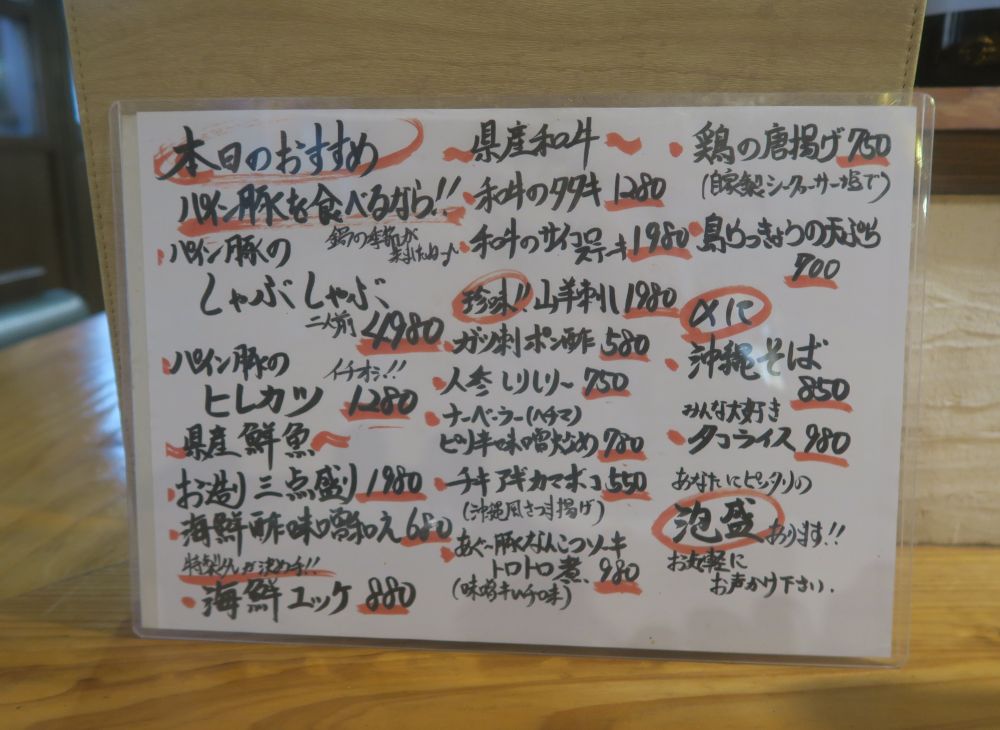 本日のおすすめ
パイン豚を食べるなら!!
鍋の季節が
パイン豚の
しゃぶしゃぶ
二人前 4980
パイン豚の イチオシ!!
ヒレカツ 1280
県産鮮魚
お造り三点盛り 1980
海鮮酢味噌和え 680
海鮮ユッケ 880
県産和牛
和牛のタタキ 1280
和牛のサイコロ
ステーキ 1980
珍味!! 山羊刺し 1980
ガツ刺ポン酢 580
人参しりしりー 750
ナーベーラー(ヘチマ)
ピリ辛味噌炒め 780
チキアギカマボコ 550
(沖縄風さつま揚げ)
あぐー豚なんこつソーキ
トロトロ煮 980
鶏の唐揚げ 750
(自家製シークヮーサー塩で)
島らっきょうの天ぷら
700
〆に
沖縄そば
850
みんな大好き
タコライス 980
あなたにピッタリの
泡盛あります!!
お気軽に
お声かけ下さい.